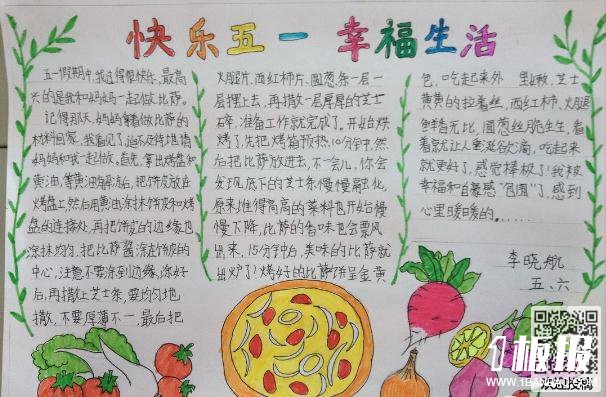 快乐五一 幸福生活
五一假期中，我过得很快乐，最高
兴的是我和妈妈一起做比萨。
记得那天，妈妈拿着做比萨的
材料回家，我看见了迫不及待地请
妈妈和我一起做。首先，拿出烤盘和
黄油，等黄油解冻后，把饼皮放在
烤盘上，然后用黄油涂抹饼皮和烤
盘的连接处，再把饼皮的边缘也
涂抹均匀。把比萨酱涂在饼皮的
中心，注意不要涂到边缘，涂好
后，再撒上芝士条，要均匀地
撒，不要厚薄不一，最后把
火腿片、西红柿片、圆葱条一层一
层摆上去，再撒一层厚厚的芝士
碎，准备工作就完成了。开始烘
烤了，先把烤箱预热10分钟，然
后把比萨放进去，不一会儿，你会
发现底下的芝士条慢慢融化，
原来堆得高高的菜料也开始慢
慢下降，比萨的香味也会飘风
出来，15分钟后，美味的比萨就
出炉了！烤好的比萨饼呈金黄
色，吃起来外 里嫩，芝士
黄黄的拉着丝，西红柿、火腿
鲜香无比，圆葱丝脆生生，看
着就让人垂涎欲滴，吃起来
就更好了，感觉棒极了！我被
幸福和自豪感“包围”了，感到
心里暖暖的……
李晓航
五、六
1板报
WWW.1BANBAO.COM